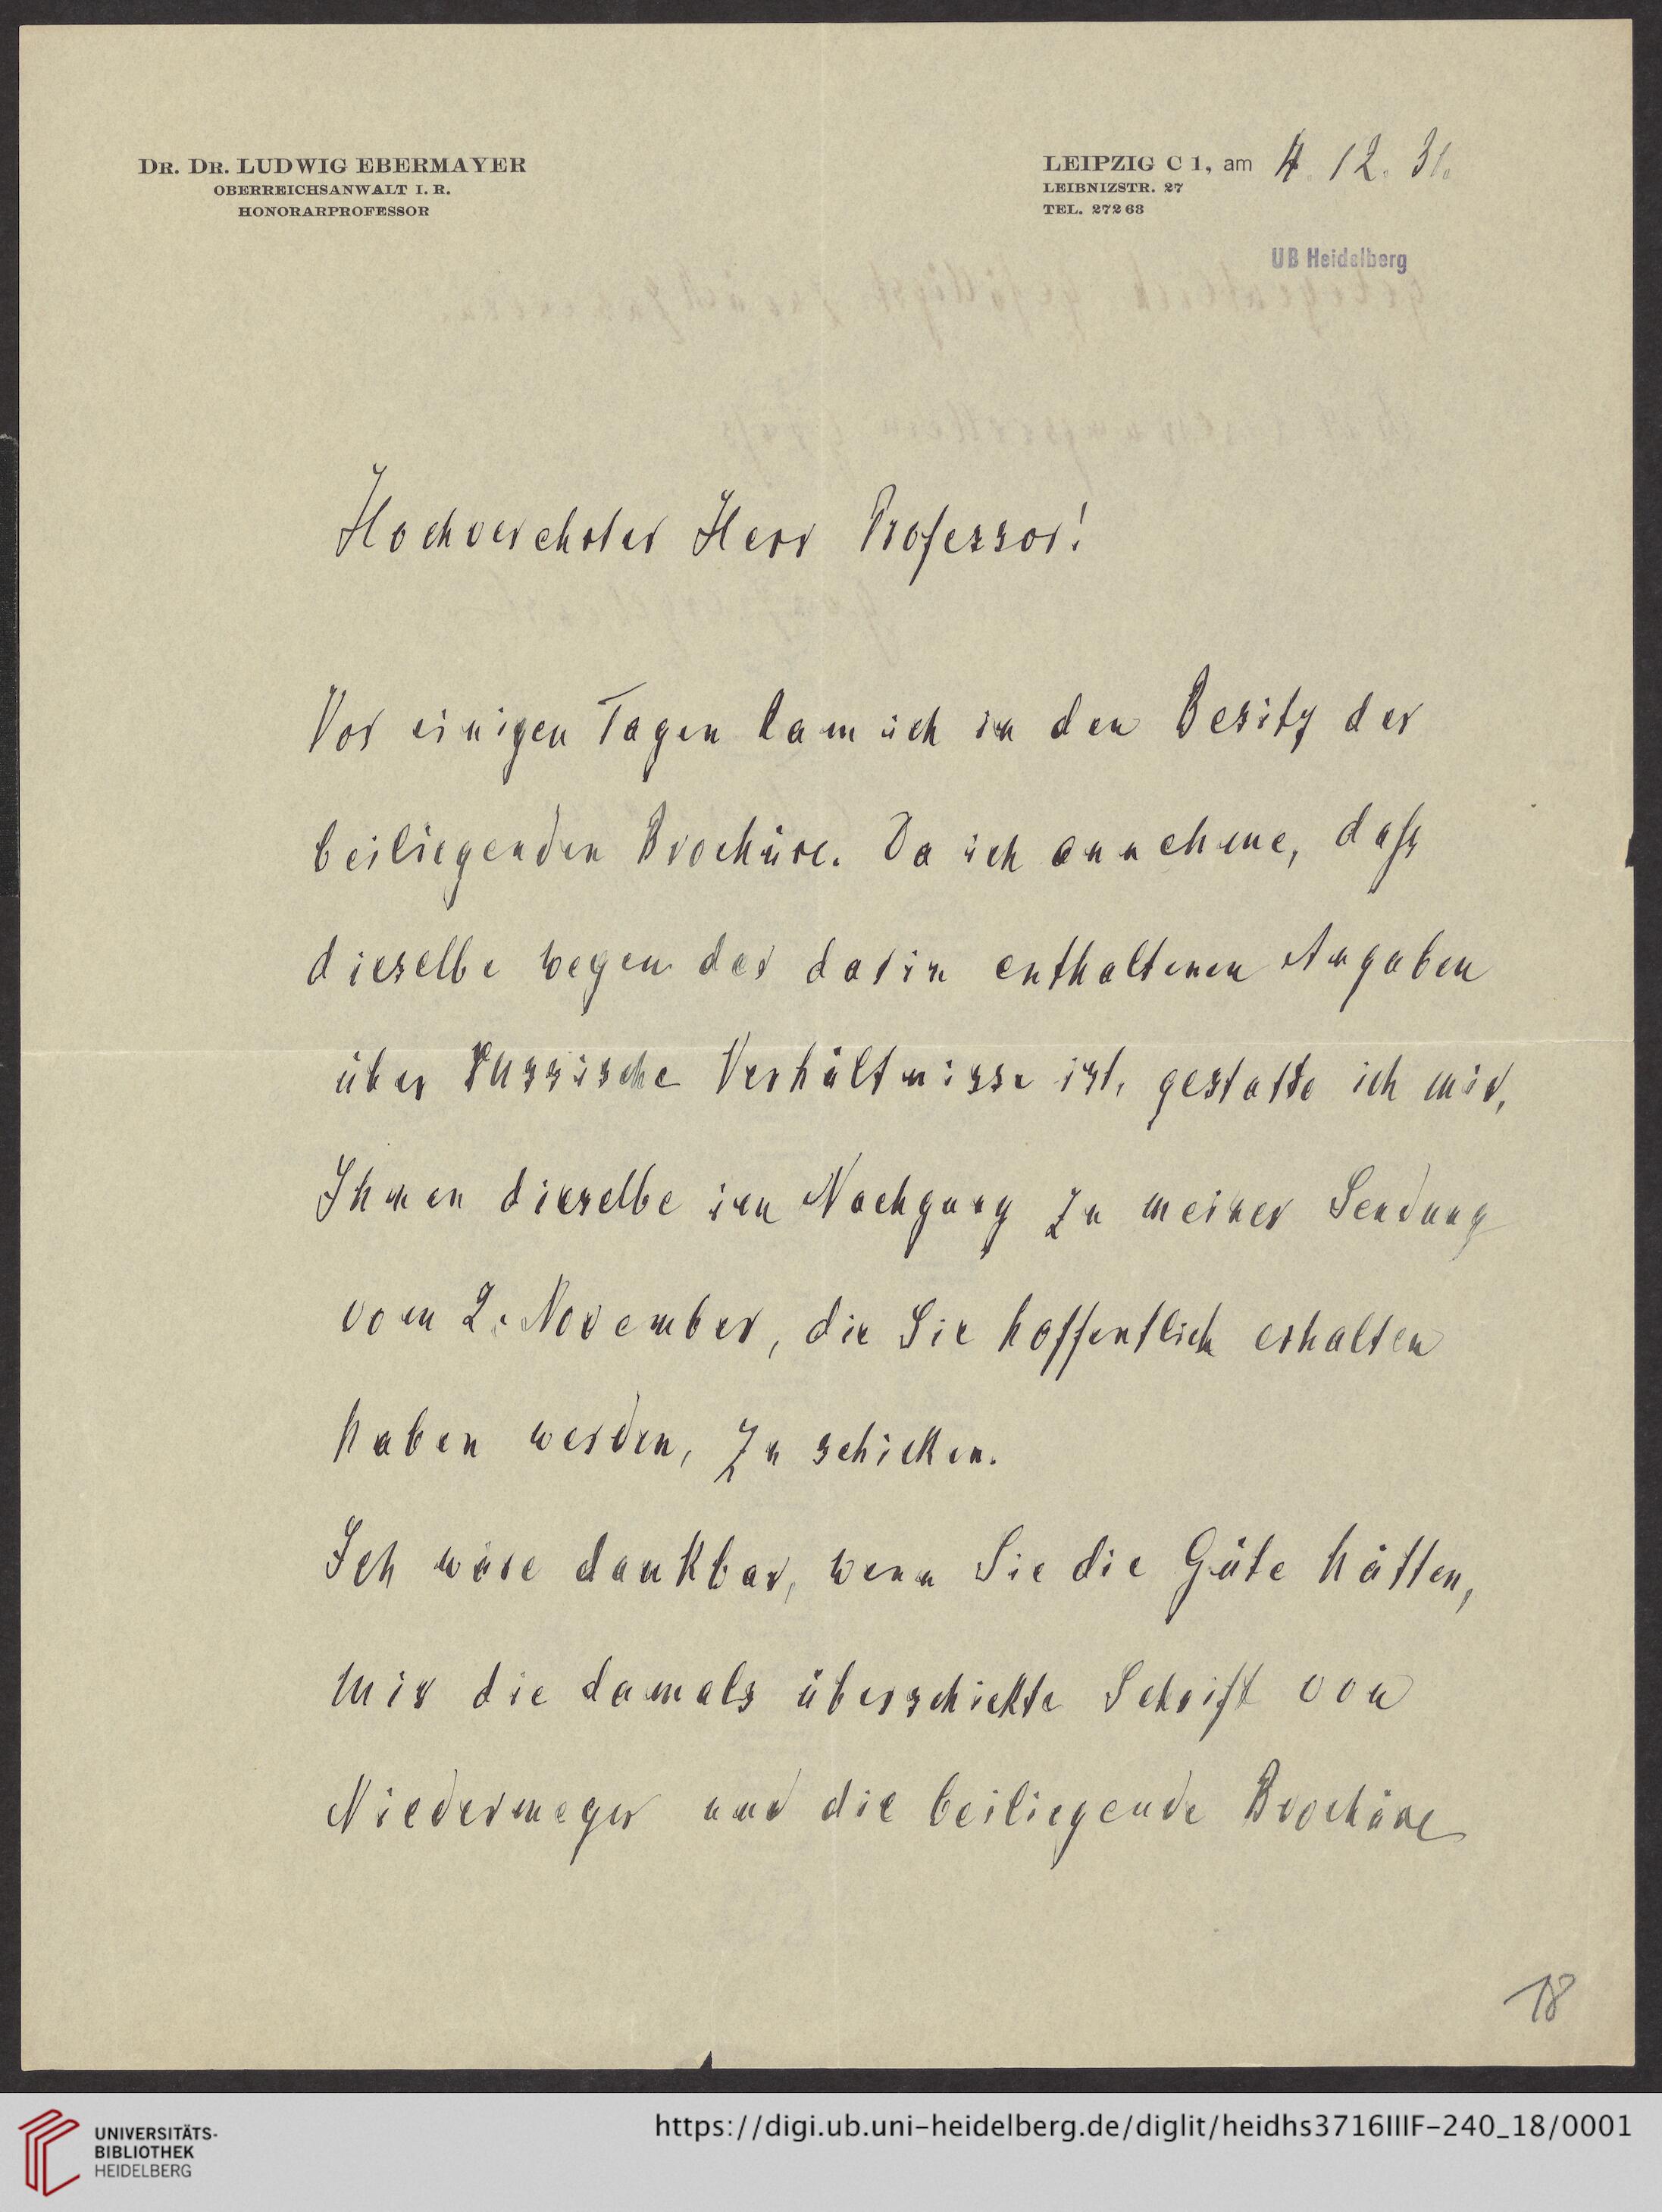 DR. DR. LUDWIG EBERMAYER
OBERREICHSANWALT I. R.
HONORARPROFESSOR
LEIPZIG C 1, am 4. 12. 31.
LEIBNIZSTR. 27
TEL. 272 63
UB Heidelberg
Hochverehrter Herr Professor!
Vor einigen Tagen kam ich in den Besitz der
beiliegenden Brochüre. Da ich annehme, daß
dieselbe wegen der darin enthaltenen Angaben
über Russische Verhältnisse ist, gestatte ich mir,
Ihnen dieselbe im Nachgang zu meiner Sendung
vom 2. November, die Sie hoffentlich erhalten
haben werden, zu schicken.
Ich wäre dankbar, wenn Sie die Güte hätten,
mir die damals überschickte Schrift von
Niedermeyer und die beiliegende Brochüre
18
UNIVERSITÄTS-
BIBLIOTHEK
HEIDELBERG
https://digi.ub.uni-heidelberg.de/diglit/heidhs3716IIIF-240_18/0001